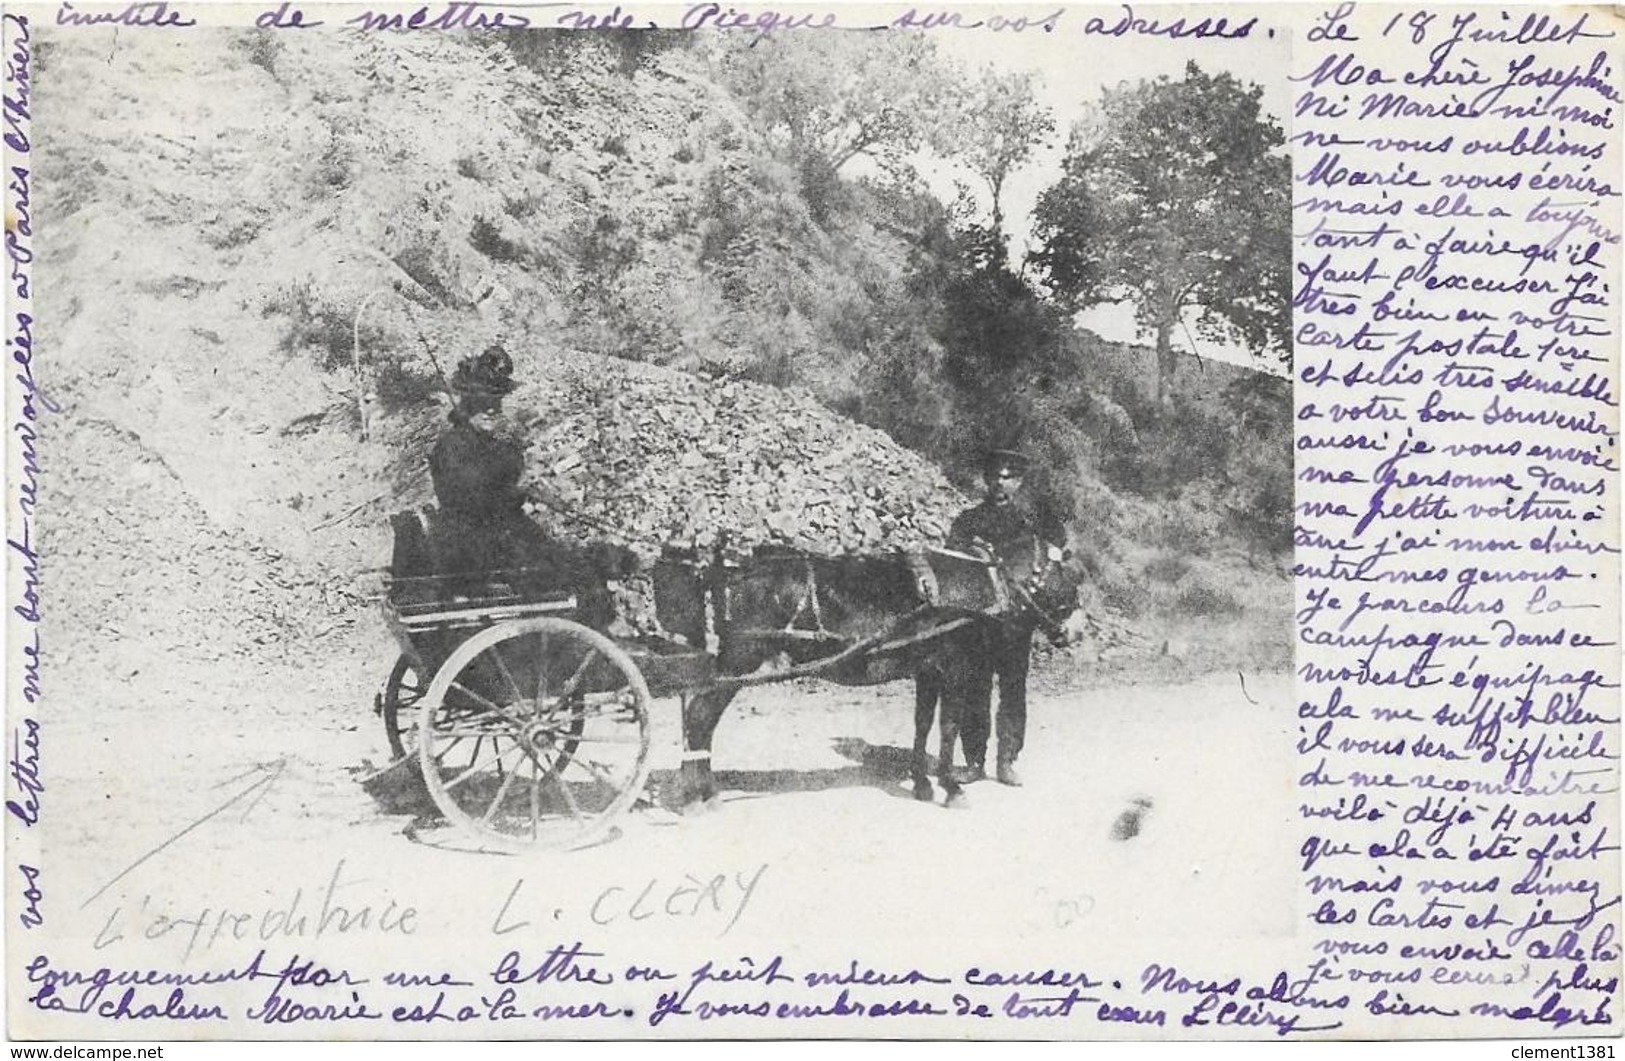 Le 18 Juillet
Ma chère Josephine
Ni Marie ni moi
ne vous oublions
Marie vous écrira
mais elle a toujours
tant à faire qu'il
faut l'excuser J'ai
très bien eu votre
carte postale 1ere
et suis très sensible
a votre bon souvenir
aussi je vous envoie
ma personne dans
ma petite voiture à
âne j'ai mon chien
entre mes genoux.
Je parcours la
campagne dans ce
modeste équipage
cela me suffit bien
il vous sera difficile
de me reconnaitre
voilà déjà 4 ans
que cela a été fait
mais vous aimez
les Cartes et je
vous envoie celle là
Je vous ecrirai plus
longuement par une lettre on peut mieux causer. Nous allons bien malgré
la chaleur Marie est à la mer. Je vous embrasse de tout cœur L Cléry
vos lettres me sont renvoyées a Paris l'hiver
inutile de mettre nie. Picque sur vos adresses.
L'expeditrice L. CLÈRY
clement1381